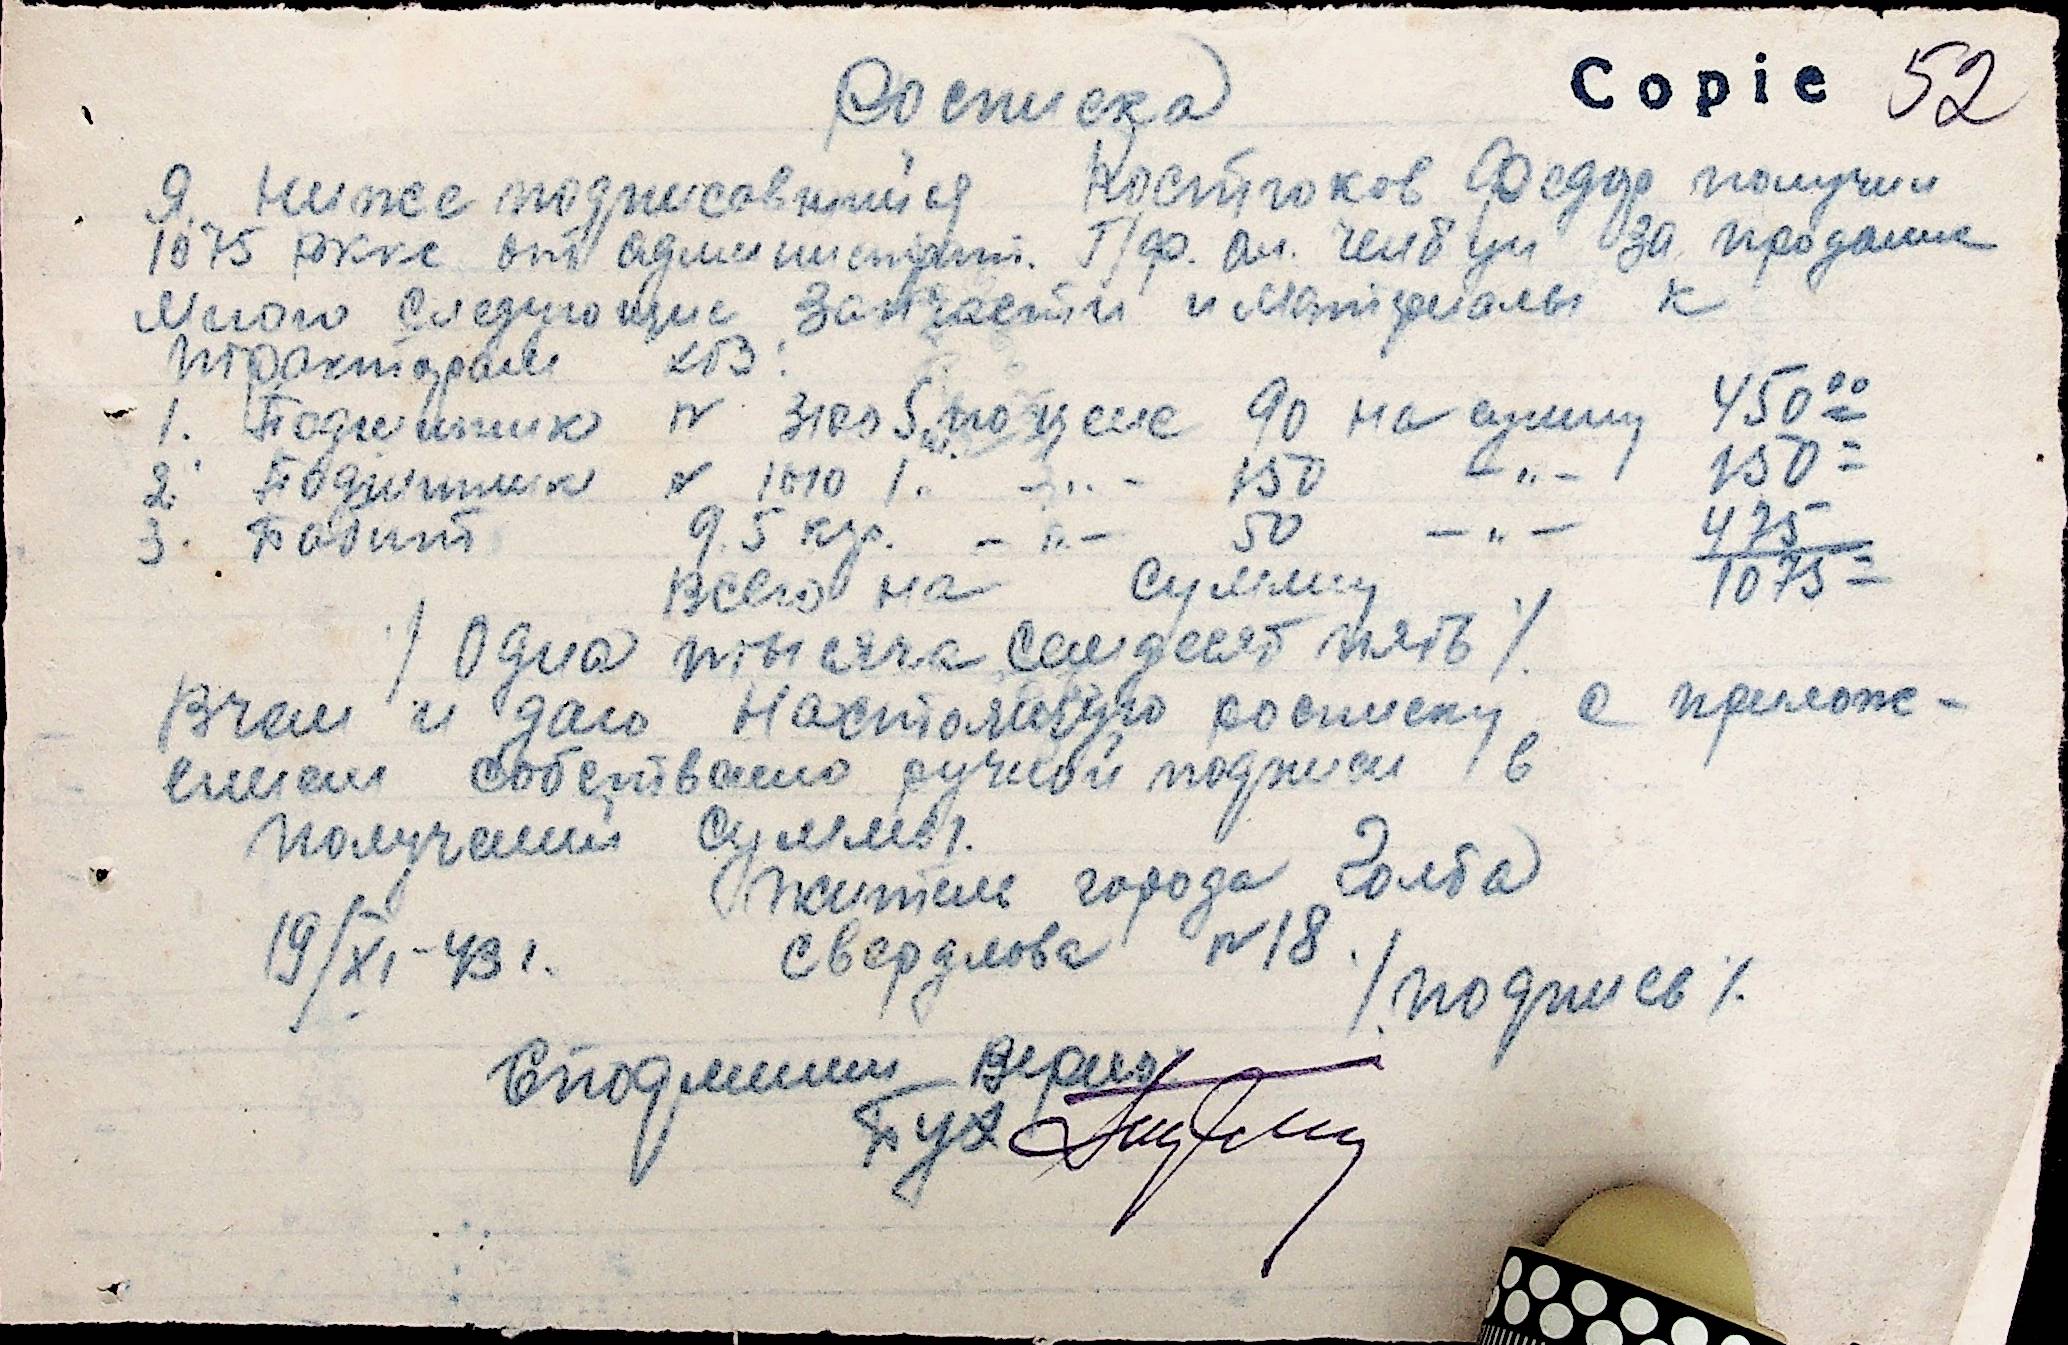 Copie 52
Росписка
Я. ниже подписавшийся Костюков Федор получил
1075 рккс от администрат. Г/ф. им. за проданые
мною следующие Запчасти и материалы к
тракторам ХТЗ:
1. Подшипник № 3100 5 по цене 90 на сумму 450 00
2. Подшипник № 1010 1. -"- 150 -"- 150=
3. Бабит 9.5 кгр. -"- 50 -"- 475
Всего на сумму 1075=
/ Одна тысяча семдесят пять /.
Вчем и даю настоящую росписку с прилож-
ением собствено ручной подписи в
получении суммы.
Житель города Голта
19/XI-43 г. Свердлова №18. / подпись /.
Сподлиным Верно:
Бух